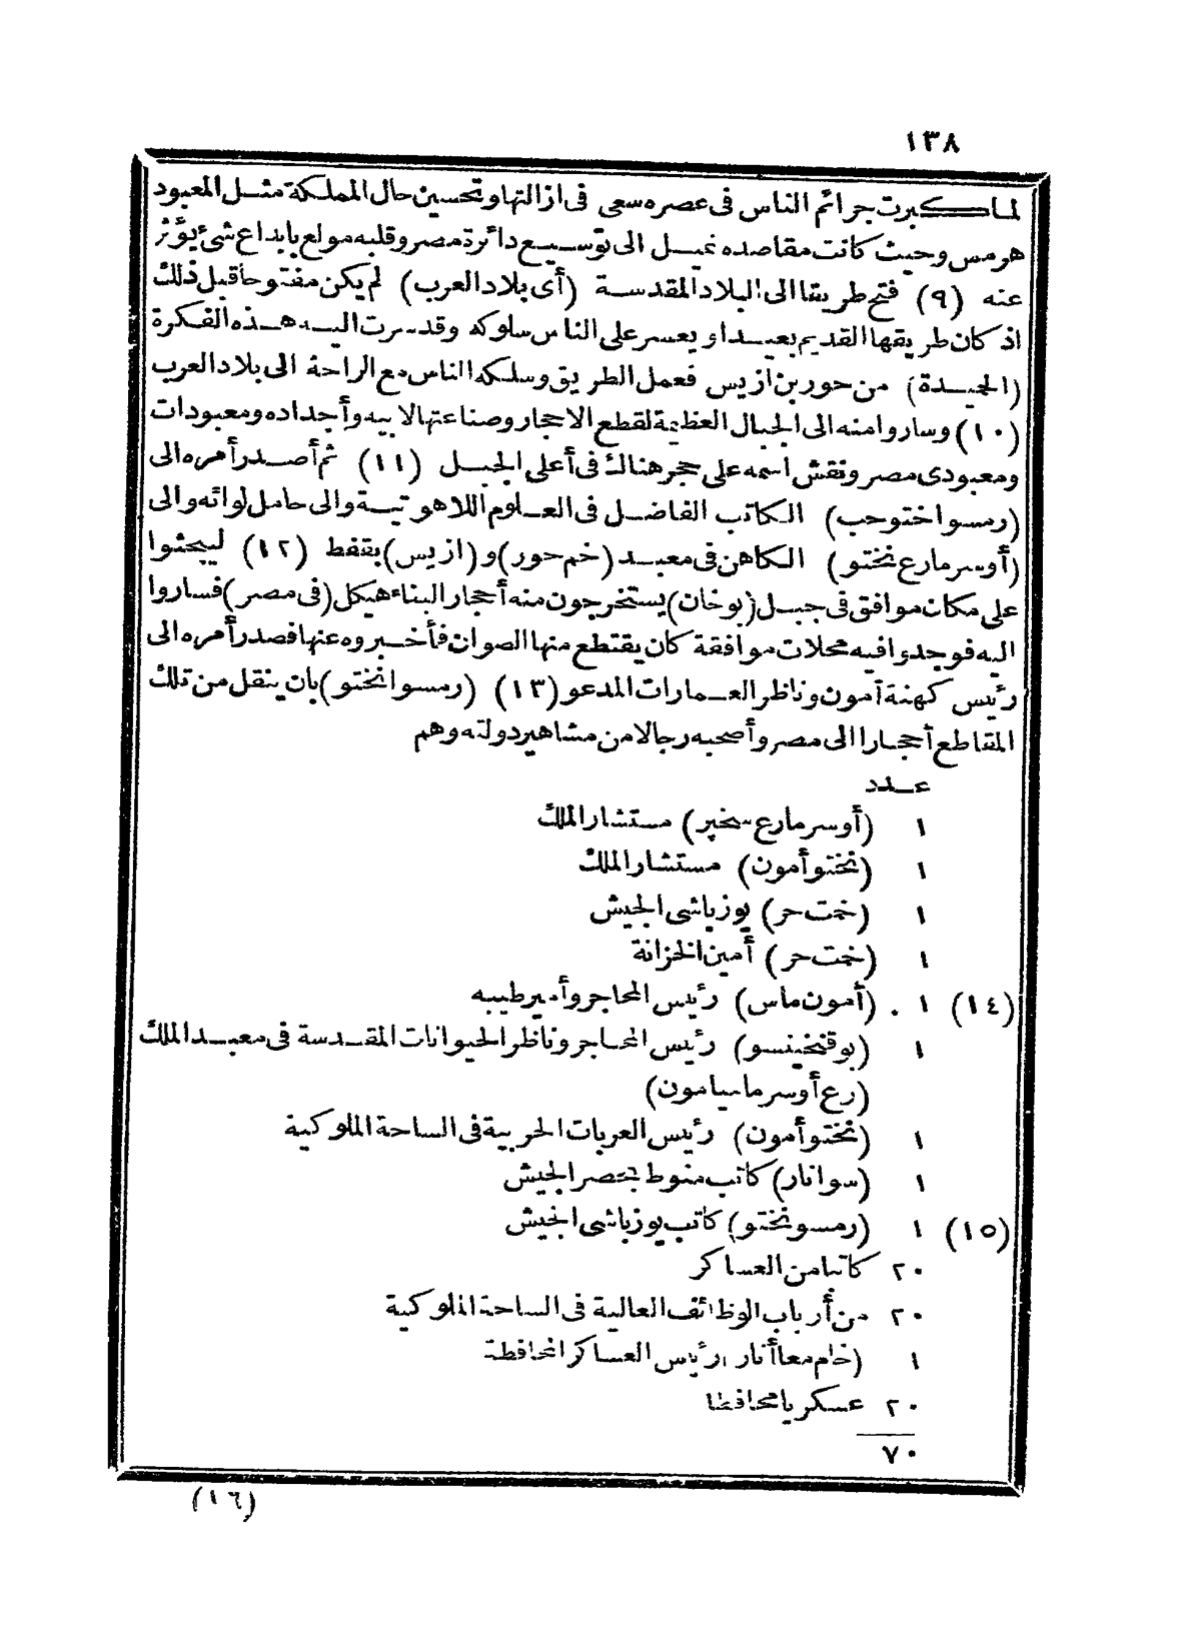 ١٣٨
لما كبرت جرائم الناس فى عصره سعى فى ازالتها وتحسين حال المملكة مثل المعبود
هرمس وحيث كانت مقاصده تميل الى توسيع دائرة مصر وقلبه مولع بابداع شئ يؤثر
عنه (٩) فتح طريقا الى البلاد المقدسة (أى بلاد العرب) لم يكن مفتوحا قبل ذلك
اذ كان طريقها القديم بعيدا ويعسر على الناس سلوكه وقد سرت اليه هذه الفكرة
(الجيدة) من حور بن ازيس فعمل الطريق وسلكه الناس مع الراحة الى بلاد العرب
(١٠) وساروا منه الى الجبال العظيمة لقطع الاحجار وصناعتها لابيه وأجداده ومعبودات
ومعبودى مصر ونقش اسمه على حجر هناك فى أعلى الجبل (١١) ثم أصدر أمره الى
(رمسواختوحب) الكاتب الفاضل فى العلوم اللاهوتية والى حامل لوائه والى
(أوسرمارع نختو) الكاهن فى معبد (خم حور) و(ازيس) بقفط (١٢) ليبحثوا
على مكان موافق فى جبل (بوخان) يستخرجون منه أحجار البناء هيكل (فى مصر) فساروا
اليه فوجدوا فيه محلات موافقة كان يقتطع منها الصوان فأخبروه عنها فصدر أمره الى
رئيس كهنة آمون وناظر العمارات المدعو (١٣) (رمسوانختو) بان ينقل من تلك
المقاطع أحجارا الى مصر وأصحبه رجالا من مشاهير دولته وهم
عدد
١ (أوسرمارع سخپر) مستشار الملك
١ (نختوأمون) مستشار الملك
١ (ختحر) يوزباشى الجيش
١ (ختحر) أمين الخزانة
(١٤) ١ . (أمون ماس) رئيس المحاجر وأمير طيبه
١ (بوقنخينسو) رئيس المحاجر وناظر الحيوانات المقدسة فى معبد الملك
(رع أوسرماميامون)
١ (نختوأمون) رئيس العربات الحربية فى الساحة الملوكية
١ (سوانار) كاتب منوط بحصر الجيش
(١٥) ١ (رمسونختو) كاتب يوزباشى الجيش
٢٠ كاتبا من العساكر
٢٠ من أرباب الوظائف العالية فى الساحة الملوكية
١ (خام معاأنار) رئيس العساكر المحافظة
٢٠ عسكريا محافظا
٧٠
(١٦)